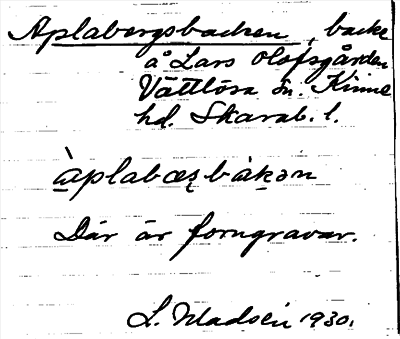 Aplabergsbacken, backe
å Lars Olofsgården
Vättlösa sn. Kinne
hd. Skarab. l.
àplabæʂbàkən
Där är forngravar.
L. Madsén 1930.